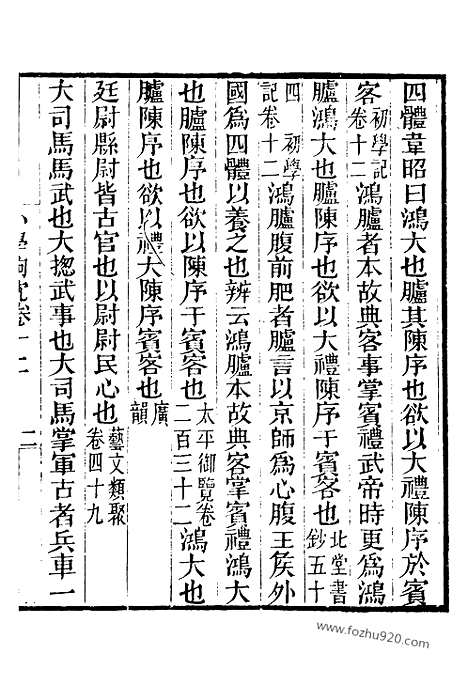 四體韋昭曰鴻大也臚其陳序也欲以大禮陳序於賓
客初學記卷十二鴻臚者本故典客事掌賓禮武帝時更爲鴻
臚鴻大也臚陳序也欲以大禮陳序于賓客也北堂書鈔五十
四初學記卷十二鴻臚腹前肥者臚言以京師爲心腹王侯外
國爲四體以養之也辨云鴻臚本故典客掌賓禮鴻大
也臚陳序也欲以陳序于賓客也太平御覽卷二百三十二鴻大也
臚陳序也欲以禮大陳序賓客也廣韻
廷尉縣尉皆古官也以尉尉民心也藝文類聚卷四十九
大司馬馬武也大揔武事也大司馬掌軍古者兵車一
小學鉤沈卷十二
二
www.fozhu920.com